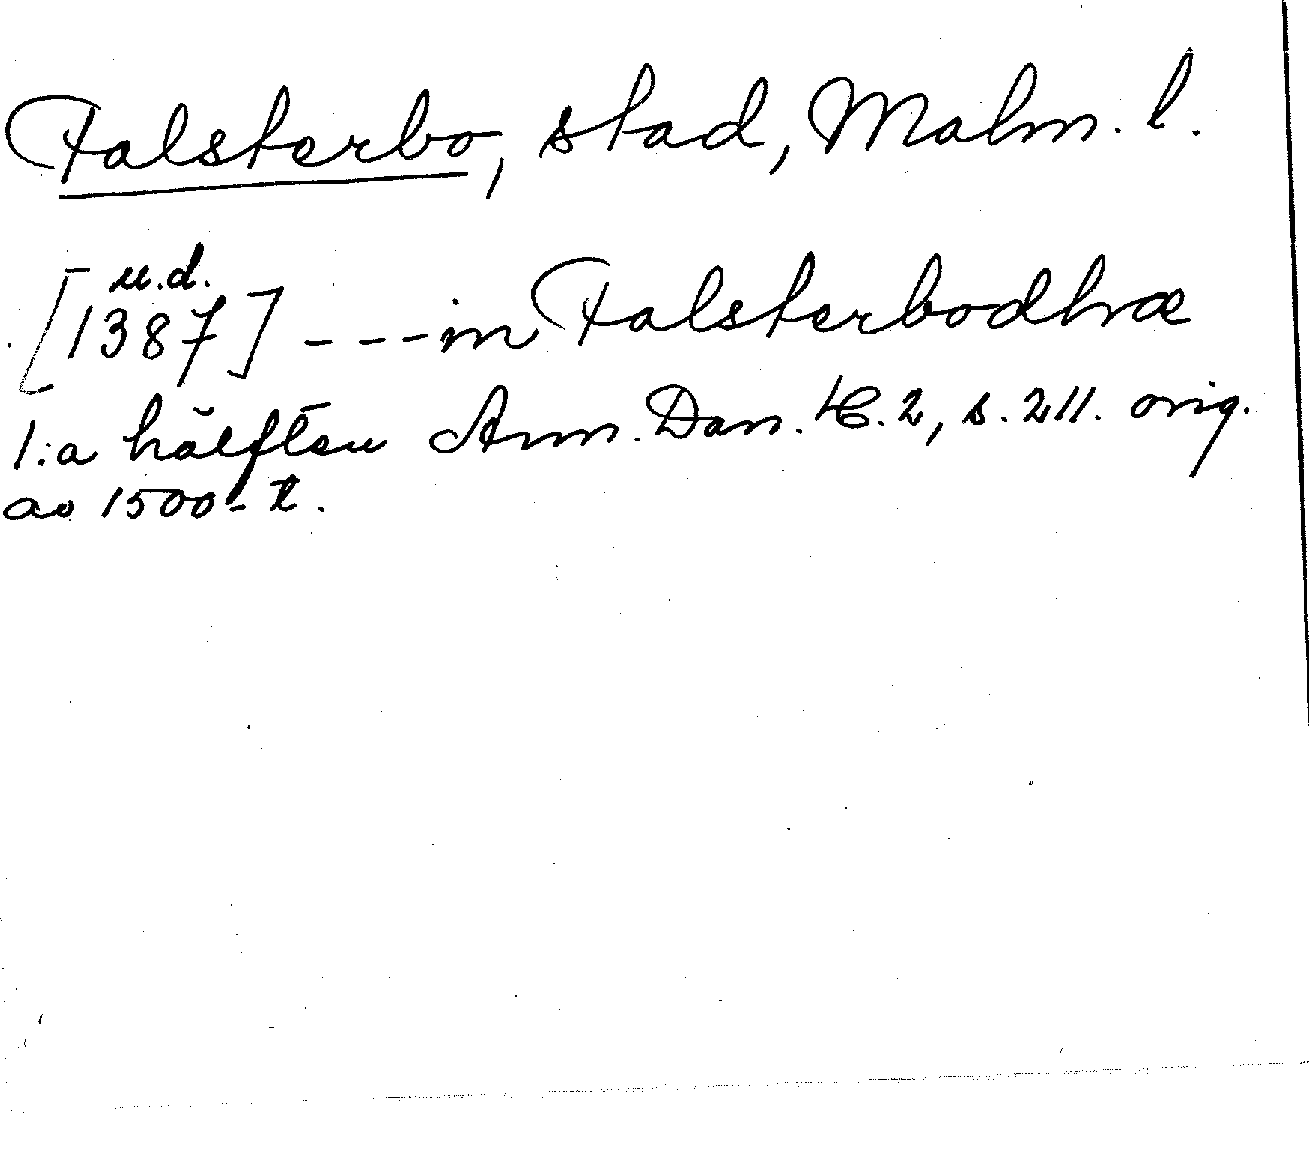 Falsterbo, stad, Malm. l.
u.d.
[1387] --- in Falsterbodhræ
1:a hälften Ann. Dan. 2, s. 211. orig.
av 1500-t.